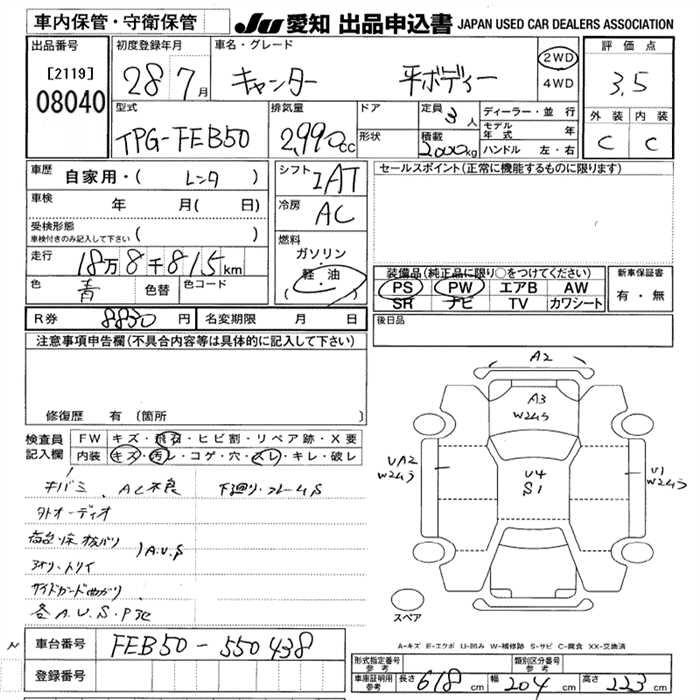 車内保管・守衛保管
JU 愛知 出品申込書 JAPAN USED CAR DEALERS ASSOCIATION
出品番号
[2119]
08040
初度登録年月
28 7月
車名・グレード
キャンター 平ボディー
2WD
4WD
評価点
3.5
外装 内装
C C
型式
TPG-FEB50
排気量
2,990cc
ドア
形状
定員 3人
積載 2000kg
ディーラー・並行
モデル年式 年
ハンドル 左・右
車歴
自家用・( レンタ )
車検 年 月( 日)
受検形態
車検付きのみ記入して下さい ( )
走行 18万8千815km
色 青 色替 色コード
シフト
IAT
冷房
AC
燃料
ガソリン
軽・油
( )
セールスポイント(正常に機能するものに限ります)
装備品(純正品に限り○をつけてください)
PS PW エアB AW
SR ナビ TV カワシート
新車保証書
有・無
R券 8830円 名変期限 月 日
後日品
注意事項申告欄(不具合内容等は具体的に記入して下さい)
修復歴 有 (箇所 )
検査員記入欄
FW キズ・飛石・ヒビ割・リペア跡・X要
内装 キズ・汚レ・コゲ・穴・スレ・キレ・破レ
キバミ、AC不良 下廻り・フレームS
外オーディオ
荷台床板バリ
アオリ・トリイ
A.U.S
サイドガード曲がり
各A.U.S.P他
A2
A3
W2ムラ
UA2
W2ムラ
U4
S1
U1
W2ムラ
スペア
A-キズ E-エクボ U-凹み W-補修跡 S-サビ C-腐食 XX-交換済
車台番号 FEB50-550438
登録番号
形式指定番号参考
類別区分番号参考
車庫証明用参考 長さ 618cm 幅 204cm 高さ 223cm